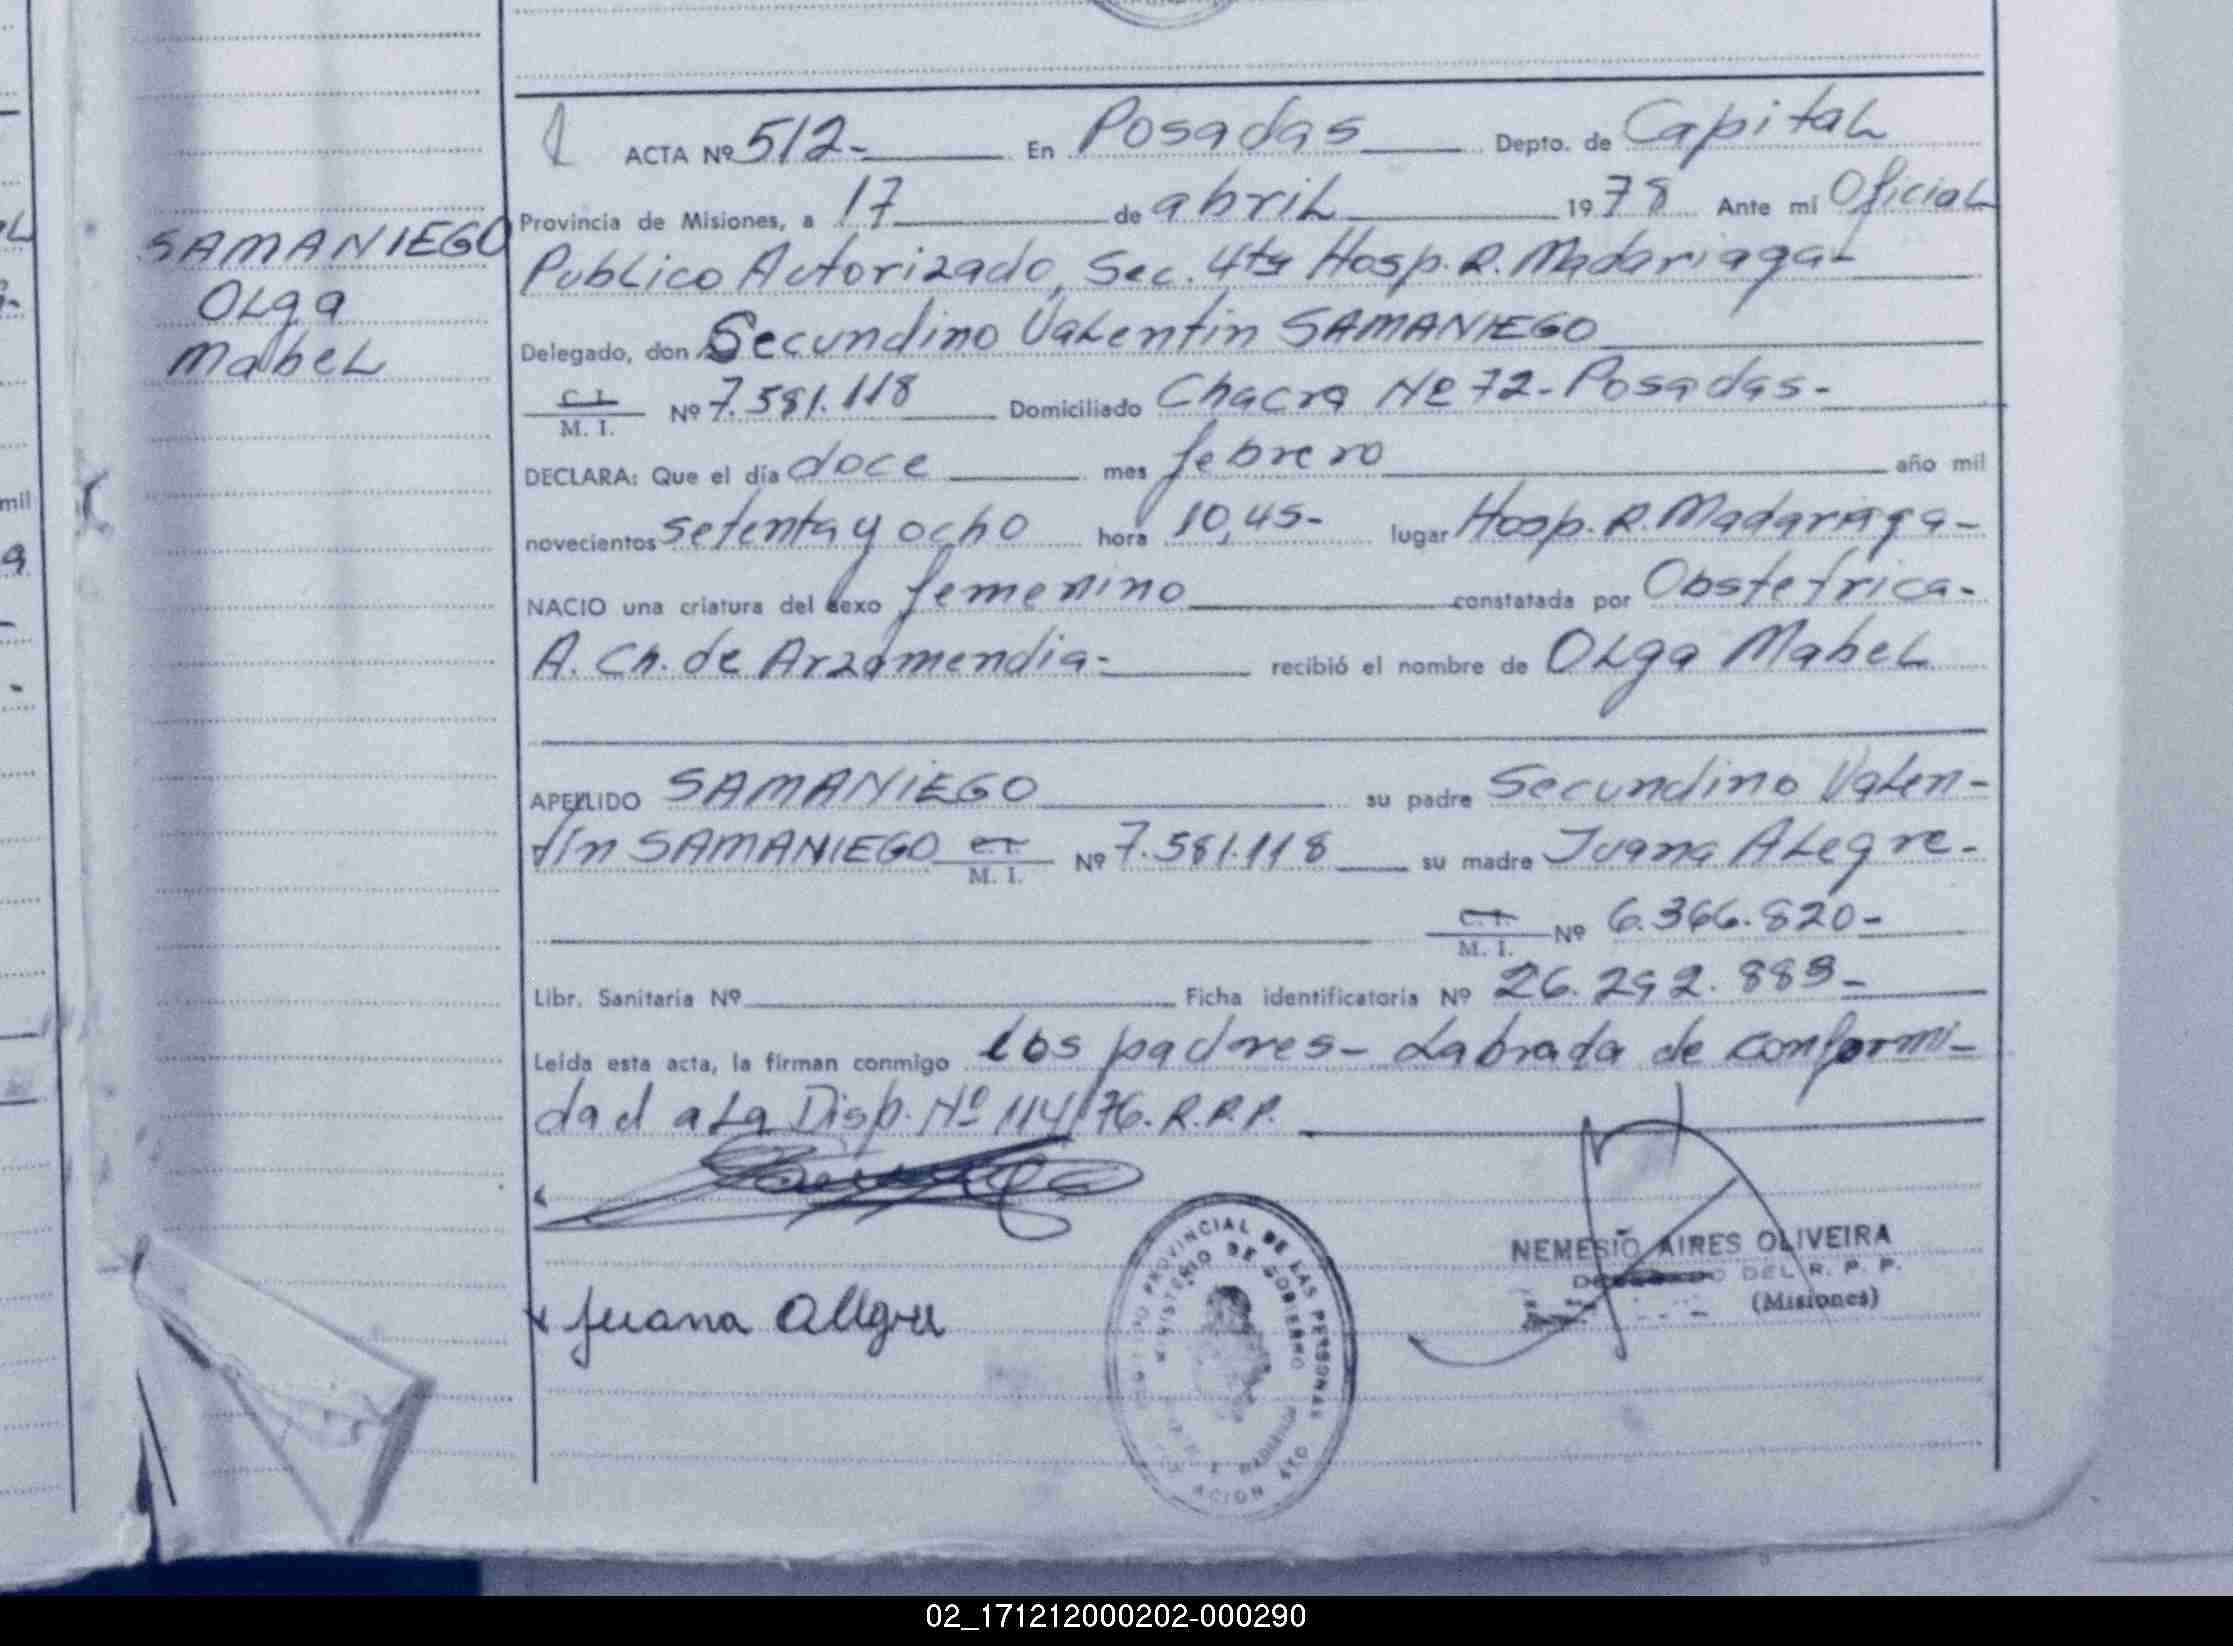 SAMANIEGO
Olga
Mabel
ACTA Nº 512- En Posadas Depto. de Capital
Provincia de Misiones, a 17 de abril 1978 Ante mi Oficial
Publico Autorizado, Sec. 4ta Hosp. R. Madariaga-
Delegado, don Secundino Valentin SAMANIEGO
C. I.
M. I. Nº 7.581.118 Domiciliado Chacra Nº 72- Posadas-
DECLARA: Que el día doce mes febrero año mil
novecientos setenta y ocho hora 10,45- lugar Hosp. R. Madariaga-
NACIO una criatura del sexo femenino constatada por Obstetrica-
A. Ch. de Arzamendia- recibió el nombre de Olga Mabel
APELLIDO SAMANIEGO su padre Secundino Valen-
tín SAMANIEGO C. I.
M. I. Nº 7.581.118 su madre Juana Alegre-
C. I.
M. I. Nº 6.366.820-
Libr. Sanitaria Nº Ficha identificatoria Nº 26.292.889-
Leída esta acta, la firman conmigo los padres- Labrada de conformi-
dad a la Disp. Nº 114/76. R.P.P.
NEMESIO AIRES OLIVEIRA
DEL R. P. P.
(Misiones)
Juana Allegre
PROVINCIAL DE LAS PERSONAS
MINISTERIO DE GOBIERNO
02_171212000202-000290